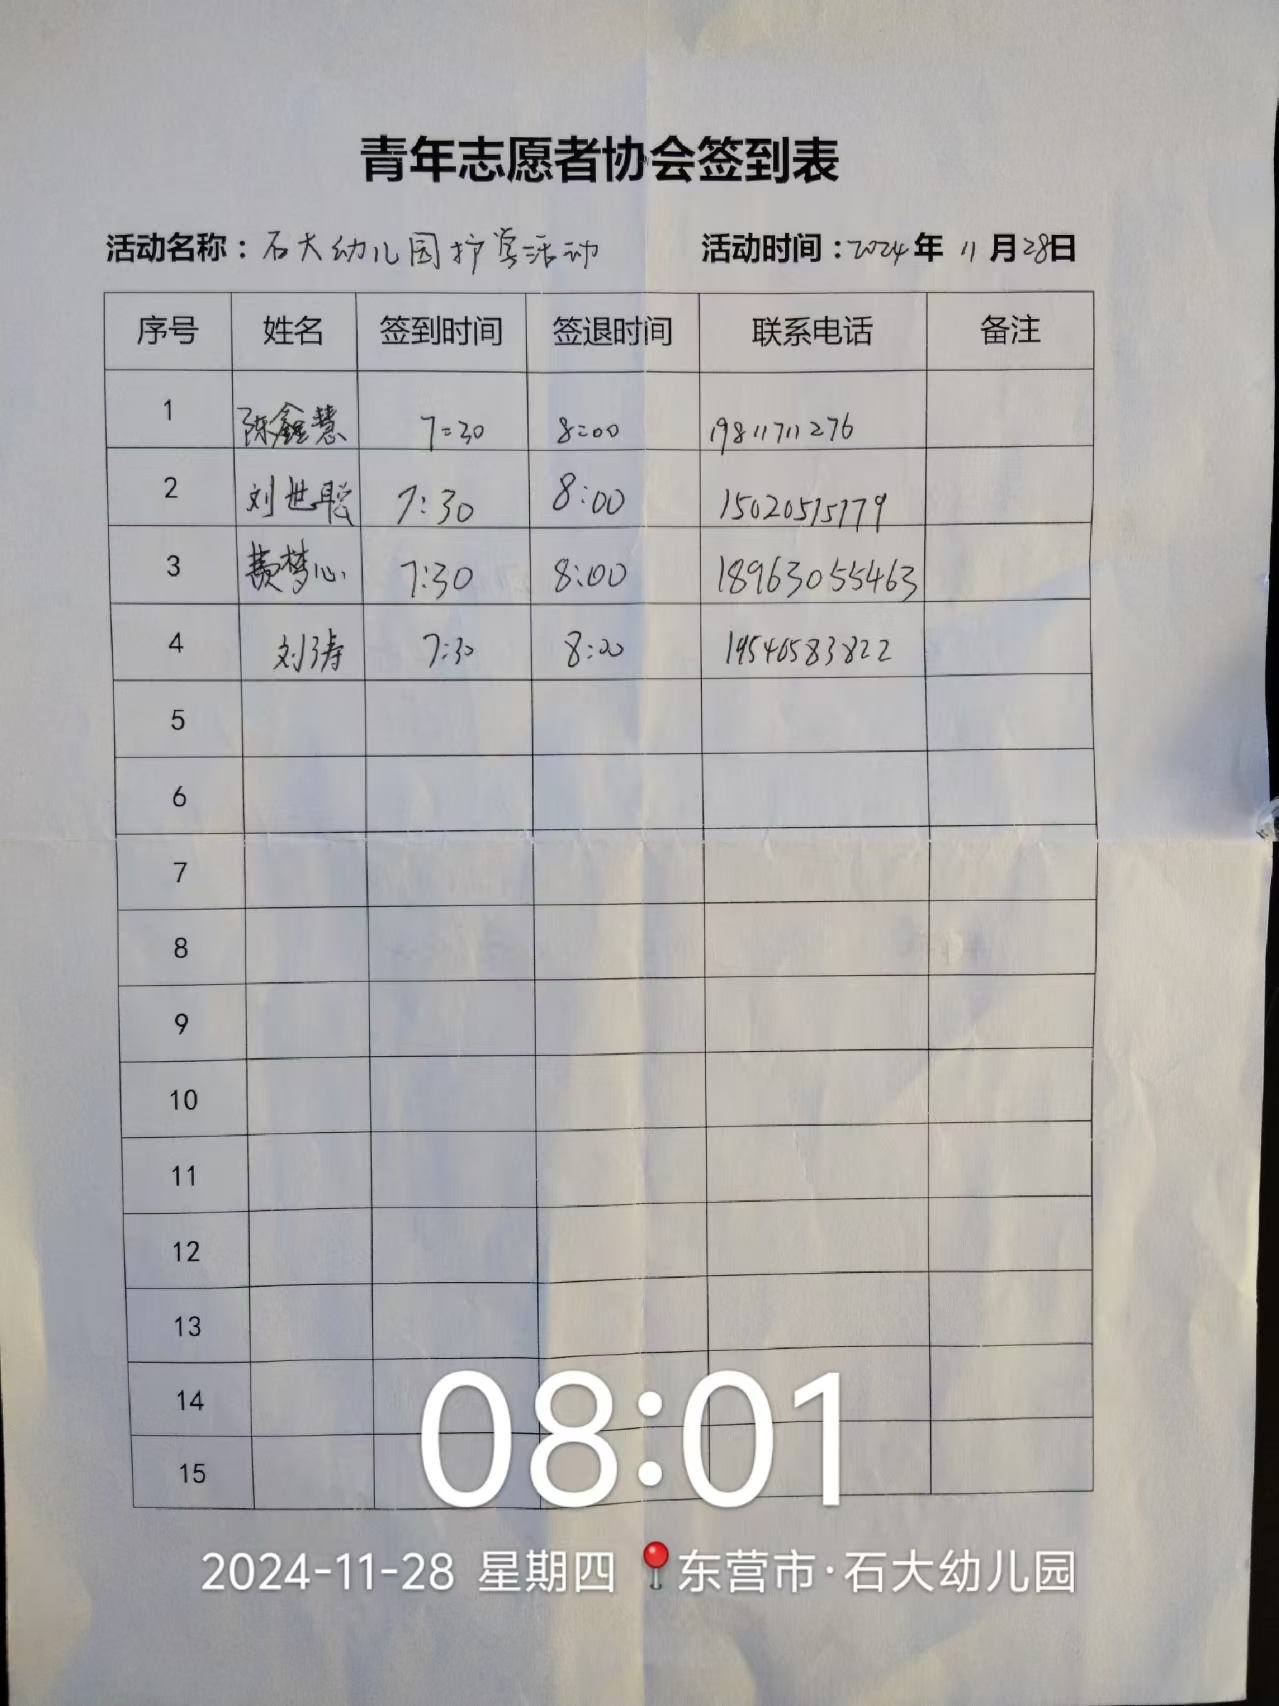 青年志愿者协会签到表
活动名称：石大幼儿园护学活动 活动时间：2024年 11 月28日
序号 姓名 签到时间 签退时间 联系电话 备注
1 陈鑫慧 7:30 8:00 19811711276
2 刘世聪 7:30 8:00 15020515179
3 费梦心 7:30 8:00 18963055463
4 刘涛 7:30 8:00 19540583822
5
6
7
8
9
10
11
12
13
14
15
08:01
2024-11-28 星期四 东营市·石大幼儿园